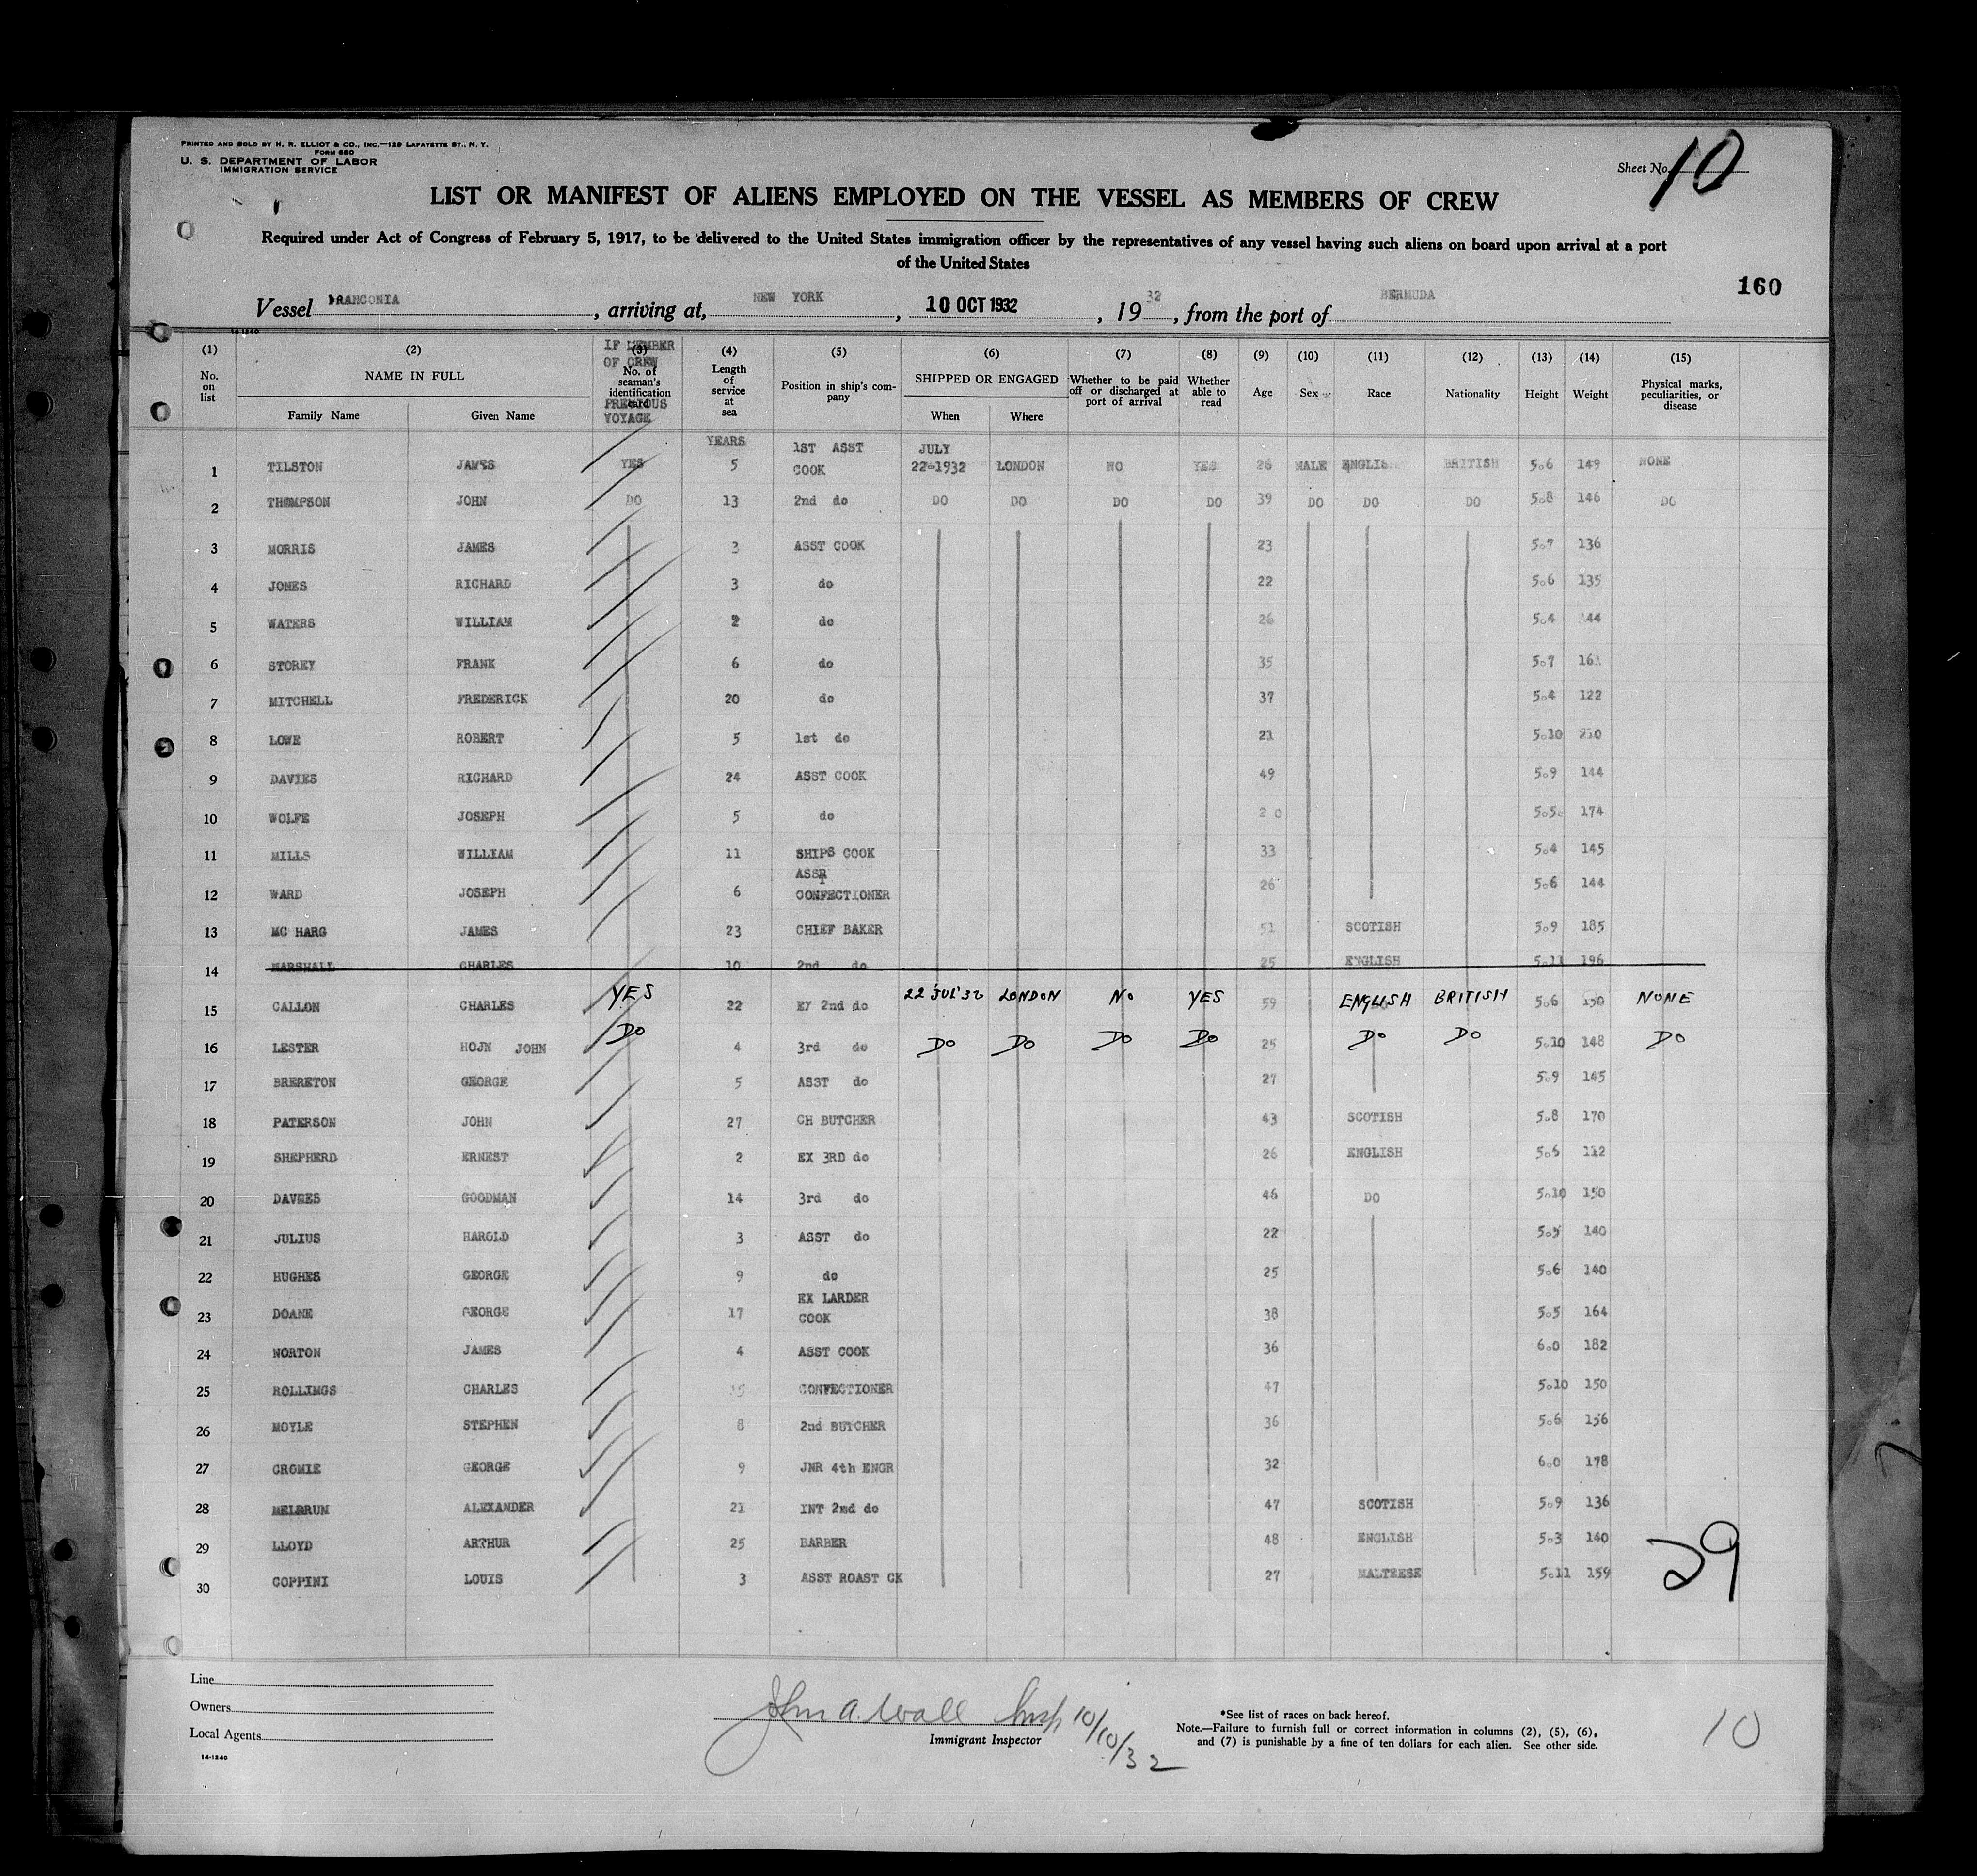 PRINTED AND SOLD BY H. R. ELLIOT & CO., INC.—129 LAFAYETTE ST., N. Y.
FORM 680
U. S. DEPARTMENT OF LABOR
IMMIGRATION SERVICE
Sheet No. 10
LIST OR MANIFEST OF ALIENS EMPLOYED ON THE VESSEL AS MEMBERS OF CREW
Required under Act of Congress of February 5, 1917, to be delivered to the United States immigration officer by the representatives of any vessel having such aliens on board upon arrival at a port
of the United States
160
Vessel FRANCONIA, arriving at, NEW YORK, 10 OCT 1932, 1932, from the port of BERMUDA
14-1240
(1) No. on list (2) NAME IN FULL Family Name Given Name (3) No. of seaman's identification card IF MEMBER OF CREW PREVIOUS VOYAGE (4) Length of service at sea (5) Position in ship's company (6) SHIPPED OR ENGAGED When Where (7) Whether to be paid off or discharged at port of arrival (8) Whether able to read (9) Age (10) Sex (11) Race (12) Nationality (13) Height (14) Weight (15) Physical marks, peculiarities, or disease
YEARS
1 TILSTON JAMES YES 5 1ST ASST COOK JULY 22-1932 LONDON NO YES 26 MALE ENGLISH BRITISH 5.6 149 NONE
2 THOMPSON JOHN DO 13 2nd do DO DO DO DO 39 DO DO DO 5.8 146 DO
3 MORRIS JAMES 3 ASST COOK 23 5.7 136
4 JONES RICHARD 3 do 22 5.6 135
5 WATERS WILLIAM 2 do 26 5.4 144
6 STOREY FRANK 6 do 35 5.7 161
7 MITCHELL FREDERICK 20 do 37 5.4 122
8 LOWE ROBERT 5 1st do 21 5.10 210
9 DAVIES RICHARD 24 ASST COOK 49 5.9 144
10 WOLFE JOSEPH 5 do 20 5.5 174
11 MILLS WILLIAM 11 SHIPS COOK 33 5.4 145
12 WARD JOSEPH 6 ASST CONFECTIONER 26 5.6 144
13 MC HARG JAMES 23 CHIEF BAKER 51 SCOTISH 5.9 185
14 MARSHALL CHARLES 10 2nd do 25 ENGLISH 5.11 196
15 CALLON CHARLES YES 22 EX 2nd do 22 JUL'32 LONDON NO YES 59 ENGLISH BRITISH 5.6 150 NONE
16 LESTER HOJN JOHN DO 4 3rd do DO DO DO DO 25 DO DO 5.10 148 DO
17 BRERETON GEORGE 5 ASST do 27 5.9 145
18 PATERSON JOHN 27 CH BUTCHER 43 SCOTISH 5.8 170
19 SHEPHERD ERNEST 2 EX 3RD do 26 ENGLISH 5.6 112
20 DAVRES GOODMAN 14 3rd do 46 DO 5.10 150
21 JULIUS HAROLD 3 ASST do 22 5.5 140
22 HUGHES GEORGE 9 do 25 5.6 140
23 DOANE GEORGE 17 EX LARDER COOK 38 5.5 164
24 NORTON JAMES 4 ASST COOK 36 6.0 182
25 ROLLINGS CHARLES 15 CONFECTIONER 47 5.10 150
26 MOYLE STEPHEN 8 2nd BUTCHER 36 5.6 156
27 CROMIE GEORGE 9 JNR 4th ENGR 32 6.0 178
28 MELDRUM ALEXANDER 21 INT 2nd do 47 SCOTISH 5.9 136
29 LLOYD ARTHUR 25 BARBER 48 ENGLISH 5.3 140
30 COPPINI LOUIS 3 ASST ROAST CK 27 MALTRESE 5.11 159
29
Line
Owners
Local Agents
14-1240
John A. Wall Insp 10/10/32
Immigrant Inspector
*See list of races on back hereof.
Note.—Failure to furnish full or correct information in columns (2), (5), (6), and (7) is punishable by a fine of ten dollars for each alien. See other side.
10